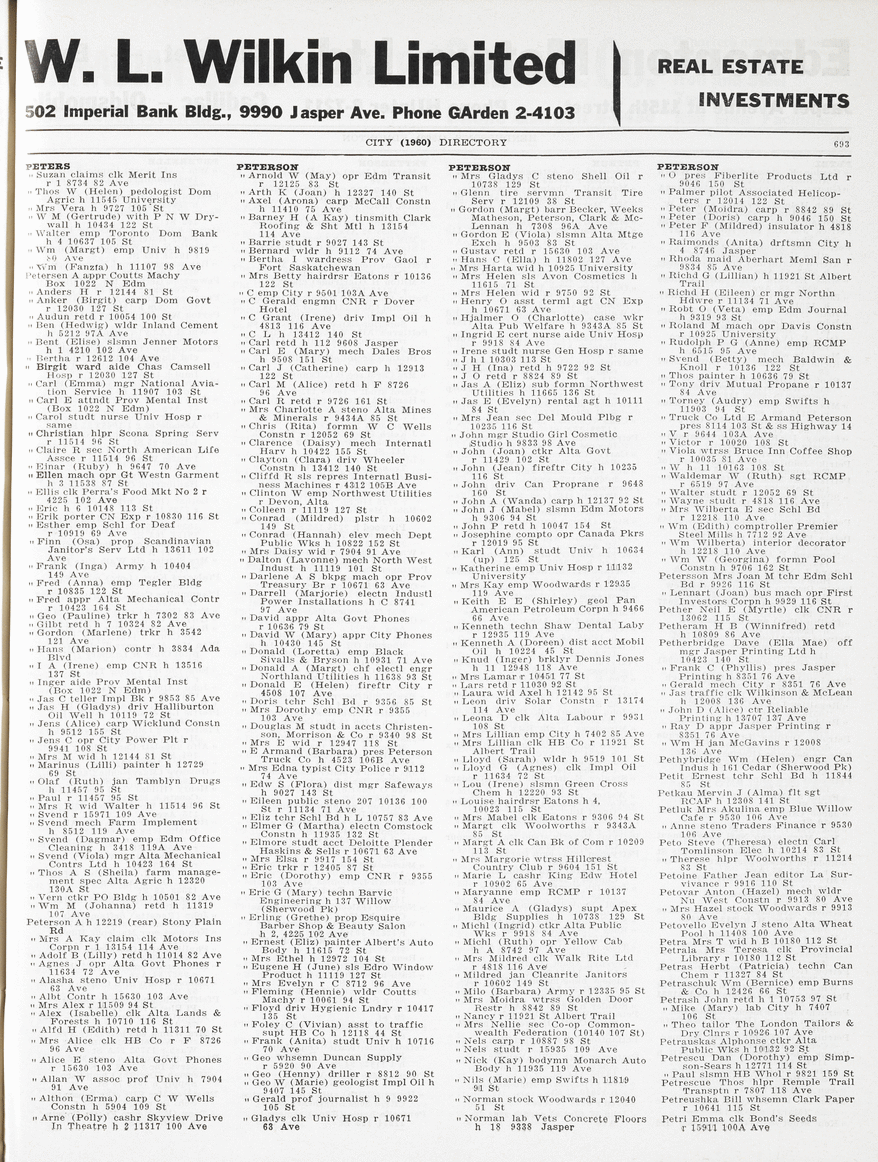 W. L. Wilkin Limited
502 Imperial Bank Bldg., 9990 Jasper Ave. Phone GArden 2-4103
REAL ESTATE
INVESTMENTS
CITY (1960) DIRECTORY
693
PETERS
" Suzan claims clk Merit Ins
r 1 8734 82 Ave
" Thos W (Helen) pedologist Dom
Agric h 11545 University
" Mrs Vera h 9727 105 St
" W M (Gertrude) with P N W Dry-
wall h 10434 122 St
" Walter emp Toronto Dom Bank
h 4 10637 105 St
" Wm (Margt) emp Univ h 9819
80 Ave
" Wm (Fanzta) h 11107 98 Ave
Petersen A appr Coutts Machy
Box 1022 N Edm
" Anders H r 12144 81 St
" Anker (Birgit) carp Dom Govt
r 12030 127 St
" Audun retd r 10054 100 St
" Ben (Hedwig) wldr Inland Cement
h 5212 97A Ave
" Bent (Elise) slsmn Jenner Motors
h 1 4210 102 Ave
" Bertha r 12612 104 Ave
" Birgit ward aide Chas Camsell
Hosp r 12030 127 St
" Carl (Emma) mgr National Avia-
tion Service h 11907 103 St
" Carl E attndt Prov Mental Inst
(Box 1022 N Edm)
" Carol studt nurse Univ Hosp r
same
" Christian hlpr Scona Spring Serv
r 11514 96 St
" Claire R sec North American Life
Assce r 11514 96 St
" Einar (Ruby) h 9647 70 Ave
" Ellen mach opr Gt Westn Garment
h 3 11538 87 St
" Ellis clk Perra's Food Mkt No 2 r
4225 102 Ave
" Eric h 6 10148 113 St
" Erik porter CN Exp r 10830 116 St
" Esther emp Schl for Deaf
r 10919 69 Ave
" Finn (Osa) prop Scandinavian
Janitor's Serv Ltd h 13611 102
Ave
" Frank (Inga) Army h 10404
149 Ave
" Fred (Anna) emp Tegler Bldg
r 10835 122 St
" Fred appr Alta Mechanical Contr
r 10423 164 St
" Geo (Pauline) trkr h 7302 83 Ave
" Gilbt retd h 7 10324 82 Ave
" Gordon (Marlene) trkr h 3542
121 Ave
" Hans (Marion) contr h 3834 Ada
Blvd
" I A (Irene) emp CNR h 13516
137 St
" Inger aide Prov Mental Inst
(Box 1022 N Edm)
" Jas C teller Impl Bk r 9853 85 Ave
" Jas H (Gladys) driv Halliburton
Oil Well h 10119 72 St
" Jens (Alice) carp Wicklund Constn
h 9512 155 St
" Jens C opr City Power Plt r
9941 108 St
" Mrs M wid h 12144 81 St
" Marinus (Lill) painter h 12729
69 St
" Olaf (Ruth) jan Tamblyn Drugs
h 11457 95 St
" Paul r 11457 95 St
" Mrs R wid Walter h 11514 96 St
" Svend r 15971 109 Ave
" Svend mech Farm Implement
h 8512 119 Ave
" Svend (Dagmar) emp Edm Office
Cleaning h 3418 119A Ave
" Svend (Viola) mgr Alta Mechanical
Contrs Ltd h 10423 164 St
" Thos A S (Sheila) farm manage-
ment spec Alta Agric h 12320
130A St
" Vern ctkr PO Bldg h 10501 82 Ave
" Wm M (Johanna) retd h 11319
107 Ave
Peterson A h 12219 (rear) Stony Plain
Rd
" Mrs A Kay claim clk Motors Ins
Corpn r 1 13154 114 Ave
" Adolf B (Lilly) retd h 11014 82 Ave
" Agnes J opr Alta Govt Phones r
11634 72 Ave
" Alasha steno Univ Hosp r 10671
63 Ave
" Albt Contr h 15630 103 Ave
" Mrs Alex r 11509 94 St
" Alex (Isabelle) clk Alta Lands &
Forests h 10710 116 St
" Alfd H (Edith) retd h 11311 70 St
" Mrs Alice clk HB Co r F 8726
96 Ave
" Alice E steno Alta Govt Phones
r 15630 103 Ave
" Allan W assoc prof Univ h 7904
91 Ave
" Althon (Erma) carp C W Wells
Constn h 5904 109 St
" Arne (Polly) cashr Skyview Drive
In Theatre h 2 11317 100 Ave
PETERSON
" Arnold W (May) opr Edm Transit
r 12125 83 St
" Arth K (Joan) h 12327 140 St
" Axel (Arona) carp McCall Constn
h 11410 75 Ave
" Barney H (A Kay) tinsmith Clark
Roofing & Sht Mtl h 13154
114 Ave
" Barrie studt r 9027 143 St
" Bernard wldr h 9112 74 Ave
" Bertha I wardress Prov Gaol r
Fort Saskatchewan
" Mrs Betty hairdrsr Eatons r 10136
122 St
" C emp City r 9501 103A Ave
" C Gerald engmn CNR r Dover
Hotel
" C Grant (Irene) driv Impl Oil h
4813 116 Ave
" C L h 13412 140 St
" Carl retd h 112 9608 Jasper
" Carl E (Mary) mech Dales Bros
h 9508 151 St
" Carl J (Catherine) carp h 12913
122 St
" Carl M (Alice) retd h F 8726
96 Ave
" Carl R retd r 9726 161 St
" Mrs Charlotte A steno Alta Mines
& Minerals r 9434A 85 St
" Chris (Rita) formn W C Wells
Constn r 12052 69 St
" Clarence (Daisy) mech Internatl
Harv h 10422 155 St
" Clayton (Clara) driv Wheeler
Constn h 13412 140 St
" Cliffd R sls repres Internatl Busi-
ness Machines r 4312 105B Ave
" Clinton W emp Northwest Utilities
r Devon, Alta
" Colleen r 11119 127 St
" Conrad (Mildred) plstr h 10602
149 St
" Conrad (Hannah) elev mech Dept
Public Wks h 10822 152 St
" Mrs Daisy wid r 7904 91 Ave
" Dalton (Lavonne) mech North West
Indust h 11119 101 St
" Darlene A S bkpg mach opr Prov
Treasury Br r 10671 63 Ave
" Darrell (Marjorie) electn Industl
Power Installations h C 8741
97 Ave
" David appr Alta Govt Phones
r 10636 79 St
" David W (Mary) appr City Phones
h 10430 145 St
" Donald (Loretta) emp Black
Sivalls & Bryson h 10931 71 Ave
" Donald A (Margt) chf electl engr
Northland Utilities h 11638 93 St
" Donald E (Helen) fireftr City r
4508 107 Ave
" Doris tchr Schl Bd r 9356 85 St
" Mrs Dorothy emp CNR r 9355
103 Ave
" Douglas M studt in accts Christen-
son, Morrison & Co r 9340 98 St
" Mrs E wid r 12947 118 St
" E Armand (Barbara) pres Peterson
Truck Co h 4523 106B Ave
" Mrs Edna typist City Police r 9112
74 Ave
" Edw S (Flora) dist mgr Safeways
h 9027 143 St
" Eileen public steno 207 10136 100
St r 11134 71 Ave
" Eliz tchr Schl Bd h L 10757 83 Ave
" Elmer G (Martha) electn Comstock
Constn h 11935 132 St
" Elmore studt acct Deloitte Plender
Haskins & Sells r 10671 63 Ave
" Mrs Elsa r 9917 154 St
" Eric trkr r 12405 87 St
" Eric (Dorothy) emp CNR r 9355
103 Ave
" Eric G (Mary) techn Barvic
Engineering h 137 Willow
(Sherwood Pk)
" Erling (Grethe) prop Esquire
Barber Shop & Beauty Salon
h 2, 4225 102 Ave
" Ernest (Eliz) painter Albert's Auto
Body h 11615 72 St
" Mrs Ethel h 12972 104 St
" Eugene H (June) sls Edro Window
Product h 11119 127 St
" Mrs Evelyn r C 8712 96 Ave
" Fleming (Hennie) wldr Coutts
Machy r 10061 94 St
" Floyd driv Hygienic Lndry r 10417
135 St
" Foley C (Vivian) asst to traffic
supt HB Co h 12218 44 St
" Frank (Anita) studt Univ h 10716
70 Ave
" Geo whsemn Duncan Supply
r 5920 90 Ave
" Geo (Henny) driller r 8812 90 St
" Geo W (Marie) geologist Impl Oil h
9407 145 St
" Gerald prof journalist h 9 9922
105 St
" Gladys clk Univ Hosp r 10671
63 Ave
PETERSON
" Mrs Gladys C steno Shell Oil r
10738 129 St
" Glenn tire servmn Transit Tire
Serv r 12109 38 St
" Gordon (Margt) barr Becker, Weeks
Matheson, Peterson, Clark & Mc-
Lennan h 7308 96A Ave
" Gordon E (Viola) slsmn Alta Mtge
Exch h 9503 83 St
" Gustav retd r 15630 103 Ave
" Hans C (Ella) h 11802 127 Ave
" Mrs Harta wid h 10925 University
" Mrs Helen sls Avon Cosmetics h
11615 71 St
" Mrs Helen wid r 9750 92 St
" Henry O asst terml agt CN Exp
h 10671 63 Ave
" Hjalmer O (Charlotte) case wkr
Alta Pub Welfare h 9343A 85 St
" Ingrid E cert nurse aide Univ Hosp
r 9918 84 Ave
" Irene studt nurse Gen Hosp r same
" J h 1 10303 113 St
" J H (Ina) retd h 9722 92 St
" J O retd r 8824 89 St
" Jas A (Eliz) sub formn Northwest
Utilities h 11665 136 St
" Jas E (Evelyn) rental agt h 10111
84 St
" Mrs Jean sec Del Mould Plbg r
10235 116 St
" John mgr Studio Girl Cosmetic
Studio h 9833 98 Ave
" John (Joan) ctkr Alta Govt
r 11429 102 St
" John (Jean) fireftr City h 10235
116 St
" John driv Can Propane r 9648
160 St
" John A (Wanda) carp h 12137 92 St
" John J (Mabel) slsmn Edm Motors
h 9306 94 St
" John P retd h 10047 154 St
" Josephine compto opr Canada Pkrs
r 12019 95 St
" Karl (Ann) studt Univ h 10634
(up) 125 St
" Katherine emp Univ Hosp r 11132
University
" Mrs Kay emp Woodwards r 12935
119 Ave
" Keith E E (Shirley) geol Pan
American Petroleum Corpn h 9466
66 Ave
" Kenneth techn Shaw Dental Laby
r 12935 119 Ave
" Kenneth A (Doreen) dist acct Mobil
Oil h 10224 45 St
" Knud (Inger) brklyr Dennis Jones
h 11 12948 118 Ave
" Mrs Lamar r 10451 77 St
" Lars retd h 11030 92 St
" Laura wid Axel h 12142 95 St
" Leon driv Solar Constn r 13174
114 Ave
" Leona D clk Alta Labour r 9931
108 St
" Mrs Lillian emp City h 7402 85 Ave
" Mrs Lillian clk HB Co r 11921 St
Albert Trail
" Lloyd (Sarah) wldr h 9519 101 St
" Lloyd G (Agnes) clk Impl Oil
r 11634 72 St
" Lou (Irene) slsmn Green Cross
Chem h 12220 93 St
" Louise hairdrsr Eatons h 4,
10023 115 St
" Mrs Mabel clk Eatons r 9306 94 St
" Margt clk Woolworths r 9343A
85 St
" Margt A clk Can Bk of Com r 10209
113 St
" Mrs Margorie wtrss Hillcrest
Country Club r 9604 151 St
" Marie L cashr King Edw Hotel
r 10902 65 Ave
" Maryanne emp RCMP r 10137
84 Ave
" Maurice A (Gladys) supt Apex
Bldg Supplies h 10738 129 St
" Michl (Ingrid) ctkr Alta Public
Wks r 9918 84 Ave
" Michl (Ruth) opr Yellow Cab
h A 8742 97 Ave
" Mrs Mildred clk Walk Rite Ltd
r 4818 116 Ave
" Mildred jan Cleanrite Janitors
r 10602 149 St
" Milo (Barbara) Army r 12335 95 St
" Mrs Moidra wtrss Golden Door
Restr h 8842 89 St
" Nancy r 11921 St Albert Trail
" Mrs Nellie sec Co-op Common-
wealth Federation (10140 107 St)
" Nels carp r 10887 98 St
" Nels studt r 15935 109 Ave
" Nick (Kay) bodymn Monarch Auto
Body h 11935 119 Ave
" Nils (Marie) emp Swifts h 11819
91 St
" Norman stock Woodwards r 12040
51 St
" Norman lab Vets Concrete Floors
h 18 9338 Jasper
PETERSON
" O pres Fiberlite Products Ltd r
9046 150 St
" Palmer pilot Associated Helicop-
ters r 12014 122 St
" Peter (Moidra) carp r 8842 89 St
" Peter (Doris) carp h 9046 150 St
" Peter F (Mildred) insulator h 4818
116 Ave
" Raimonds (Anita) drftsmn City h
4 8746 Jasper
" Rhoda maid Aberhart Meml San r
9834 85 Ave
" Richd G (Lillian) h 11921 St Albert
Trail
" Richd H (Eileen) cr mgr Northn
Hdwre r 11134 71 Ave
" Robt O (Veta) emp Edm Journal
h 9319 93 St
" Roland M mach opr Davis Constn
r 10925 University
" Rudolph P G (Anne) emp RCMP
h 6515 95 Ave
" Svend (Betty) mech Baldwin &
Knoll r 10136 122 St
" Thos painter h 10636 79 St
" Tony driv Mutual Propane r 10137
84 Ave
" Torney (Audry) emp Swifts h
11903 94 St
" Truck Co Ltd E Armand Peterson
pres 8114 103 St & ss Highway 14
" V r 9644 103A Ave
" Victor r 10020 108 St
" Viola wtrss Bruce Inn Coffee Shop
r 10035 81 Ave
" W h 11 10163 108 St
" Waldemar W (Ruth) sgt RCMP
r 6519 97 Ave
" Walter studt r 12052 69 St
" Wayne studt r 4818 116 Ave
" Mrs Wilberta E sec Schl Bd
r 12218 110 Ave
" Wm (Edith) comptroller Premier
Steel Mills h 7712 92 Ave
" Wm (Wilberta) interior decorator
h 12218 110 Ave
" Wm W (Georgina) formn Pool
Constn h 9706 162 St
Petersson Mrs Joan M tchr Edm Schl
Bd r 9926 116 St
" Lennart (Joan) bus mach opr First
Investors Corpn h 9929 116 St
Pether Neil E (Myrtle) clk CNR r
13062 115 St
Petheram H B (Winnifred) retd
h 10809 86 Ave
Petherbridge Dave (Ella Mae) off
mgr Jasper Printing Ltd h
10423 140 St
" Frank C (Phyllis) pres Jasper
Printing h 8351 76 Ave
" Gerald mech City r 8351 76 Ave
" Jas traffic clk Wilkinson & McLean
h 12008 136 Ave
" John D (Alice) ctr Reliable
Printing h 13707 137 Ave
" Ray D appr Jasper Printing r
8351 76 Ave
" Wm H jan McGavins r 12008
136 Ave
Pethybridge Wm (Helen) engr Can
Indus h 161 Cedar (Sherwood Pk)
Petit Ernest tchr Schl Bd h 11844
85 St
Petkau Mervin J (Alma) flt sgt
RCAF h 12308 141 St
Petluk Mrs Akulina emp Blue Willow
Cafe r 9530 106 Ave
" Anne steno Traders Finance r 9530
106 Ave
Peto Steve (Theresa) electn Carl
Tomlinson Elec h 10214 83 St
" Therese hlpr Woolworths r 11214
83 St
Petoine Father Jean editor La Sur-
vivance r 9916 110 St
Petovar Anton (Hazel) mech wldr
Nu West Constn r 9913 80 Ave
" Mrs Hazel stock Woodwards r 9913
80 Ave
Petovello Evelyn J steno Alta Wheat
Pool h 11408 100 Ave
Petra Mrs T wid h B 10180 112 St
Petrala Mrs Teresa clk Provincial
Library r 10180 112 St
Petras Herbt (Patricia) techn Can
Chem r 11327 84 St
Petraschuk Wm (Bernice) emp Burns
& Co h 12426 66 St
Petrash John retd h 1 10753 97 St
" Mike (Mary) lab City h 7407
106 St
" Theo tailor The London Tailors &
Dry Clnrs r 10926 107 Ave
Petrauskas Alphonse ctkr Alta
Public Wks h 10132 92 St
Petrescu Dan (Dorothy) emp Simp-
son-Sears h 12771 114 St
" Paul slsmn HB Whol r 9821 159 St
Petrescue Thos hlpr Remple Trail
Transptn r 7807 118 Ave
Petreushka Bill whsemn Clark Paper
r 10641 115 St
Petri Emma clk Bond's Seeds
r 15911 100A Ave